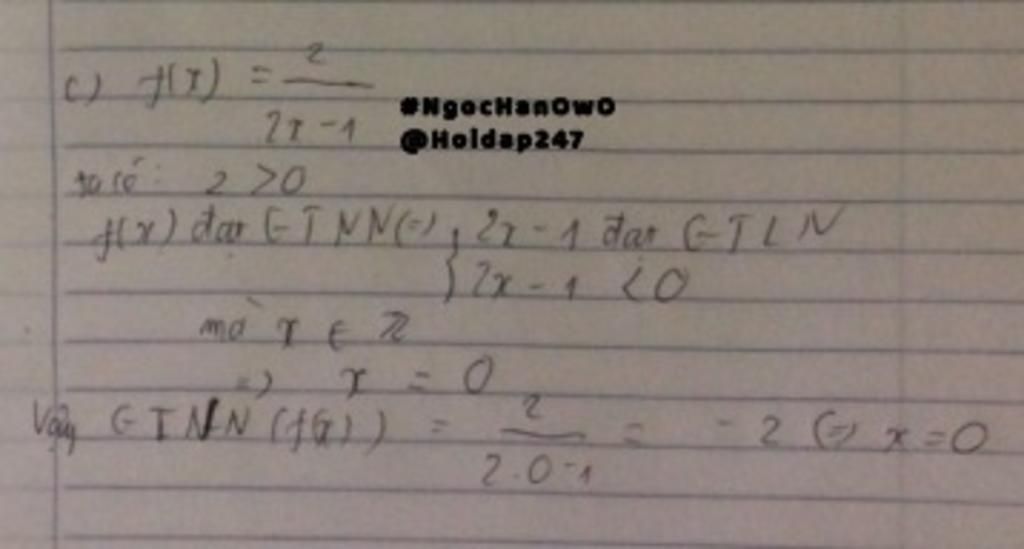 c) f(x) = 2/(2x-1)
#NgocHanOwO
@Hoidap247
ta có: 2 > 0
f(x) đạt GTNN (=) { 2x - 1 đạt GTLN
2x - 1 < 0
mà x ∈ Z
=) x = 0
Vậy GTNN (f(x)) = 2/(2.0-1) = -2 (=) x = 0